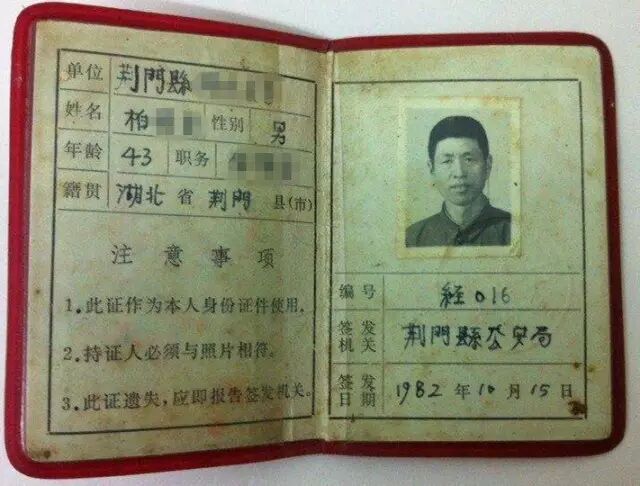 单位 荆門縣
姓名 柏 性别 男
年龄 43 职务
籍贯 湖北 省 荆門 县(市)
注意事项
1.此证作为本人身份证件使用.
2.持证人必须与照片相符.
3.此证遗失,应即报告签发机关.
编号 经016
签发机关 荆門縣公安局
签发日期 1982 年 10 月 15 日